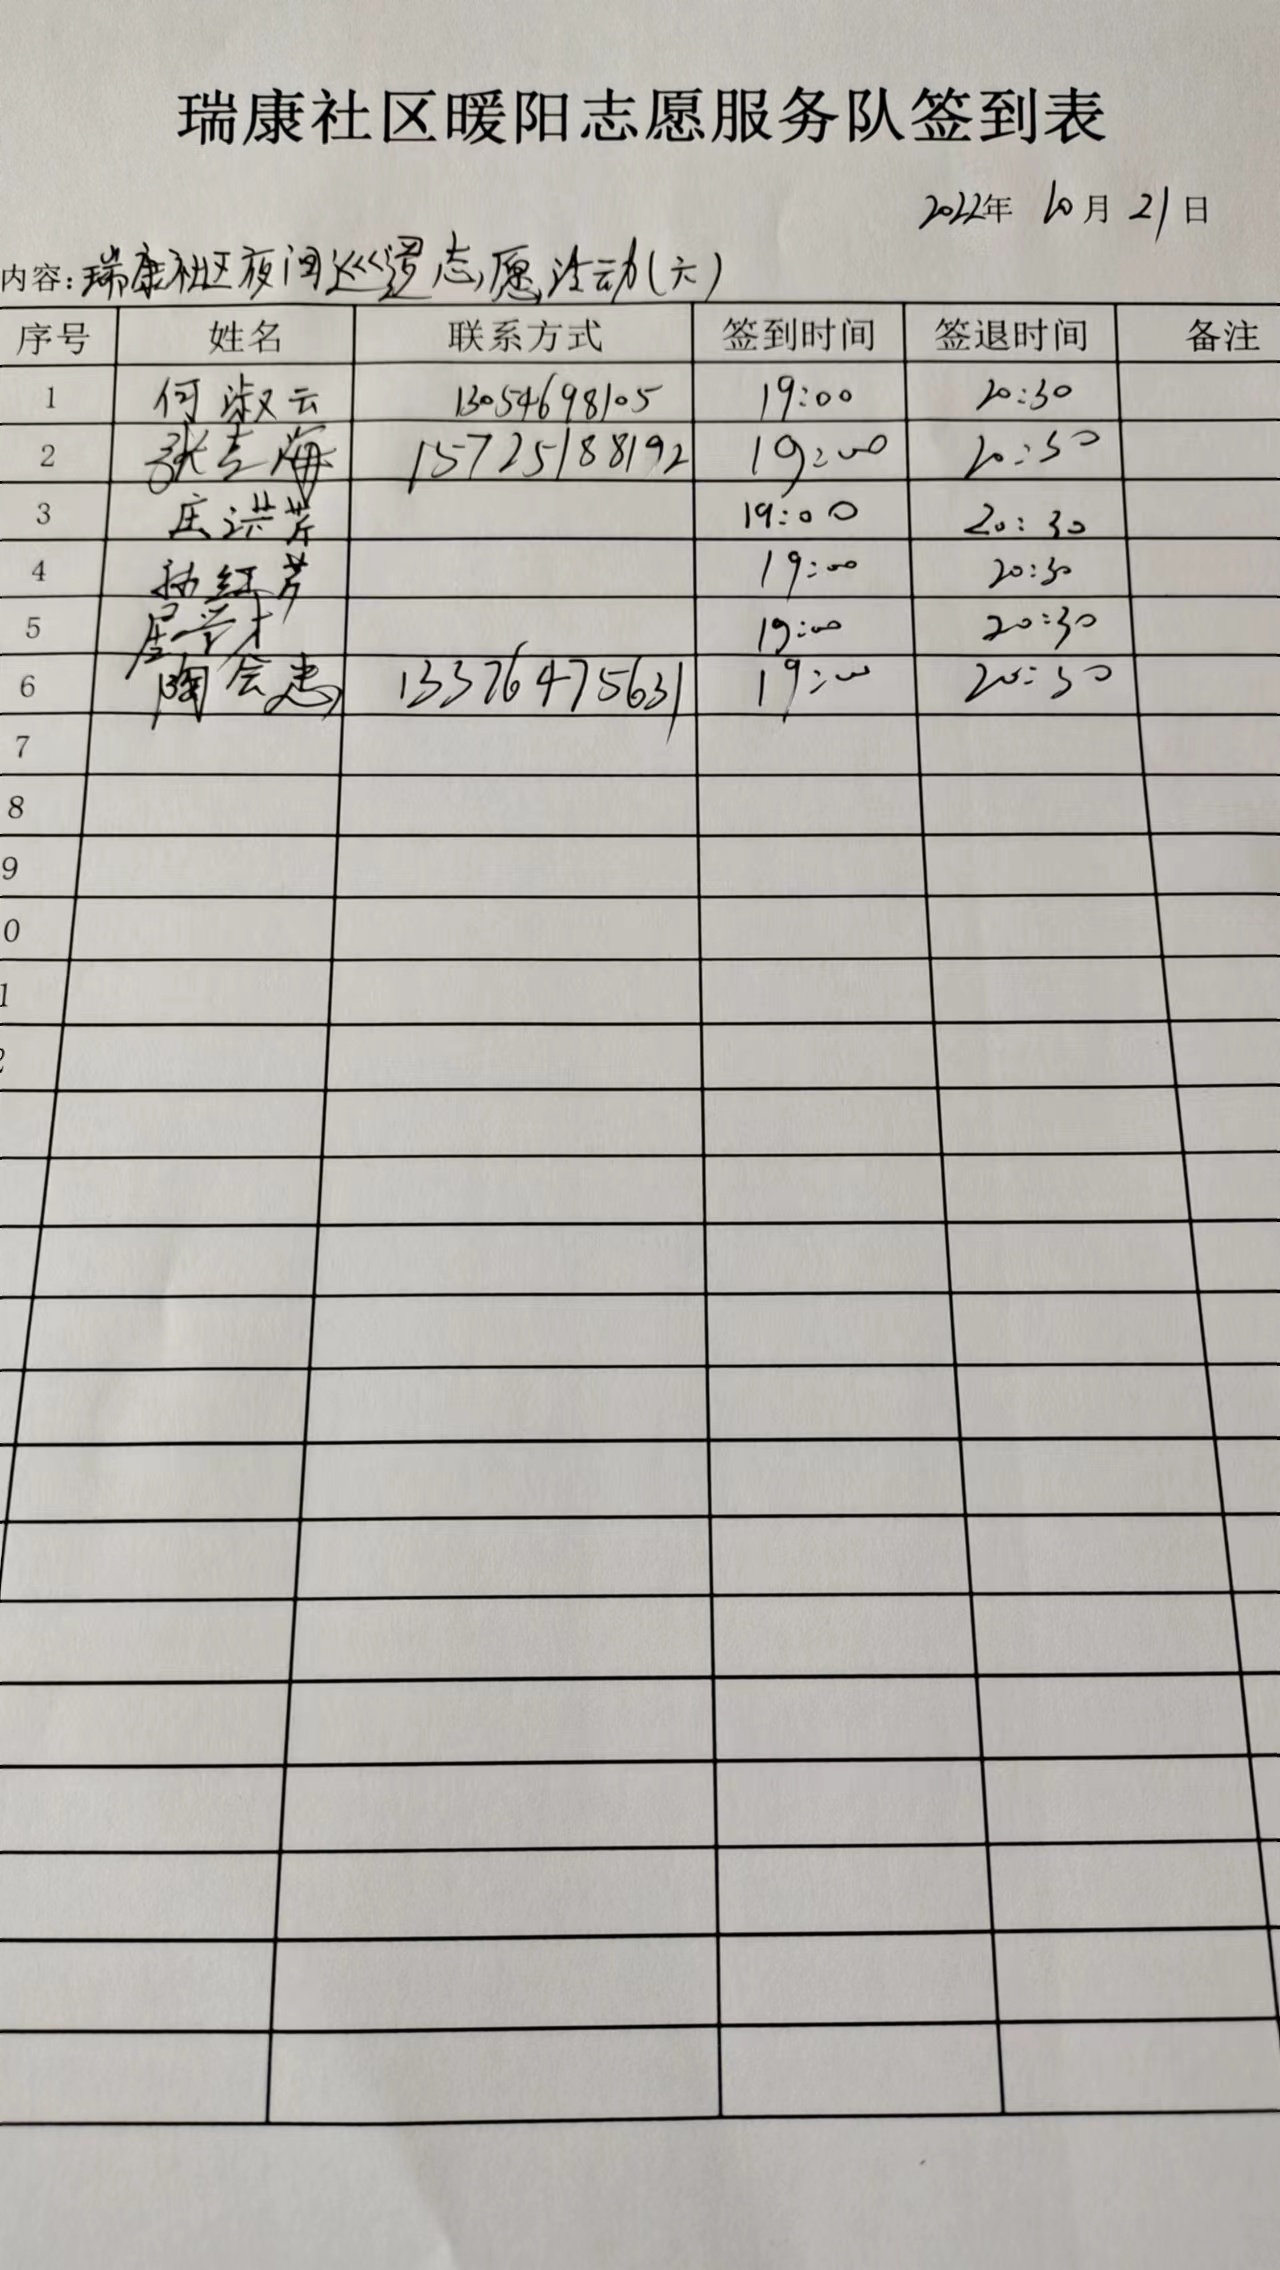 瑞康社区暖阳志愿服务队签到表
2022年 10月 21日
内容：瑞康社区夜间巡逻志愿活动(六)
序号 姓名 联系方式 签到时间 签退时间 备注
1 何淑云 13054698105 19:00 20:30
2 张志海 15725188192 19:00 20:30
3 庄洪芹 19:00 20:30
4 孙红芳 19:00 20:30
5 19:00 20:30
6 陶会惠 13376475631 19:00 20:30
7
8
9
0
1
2